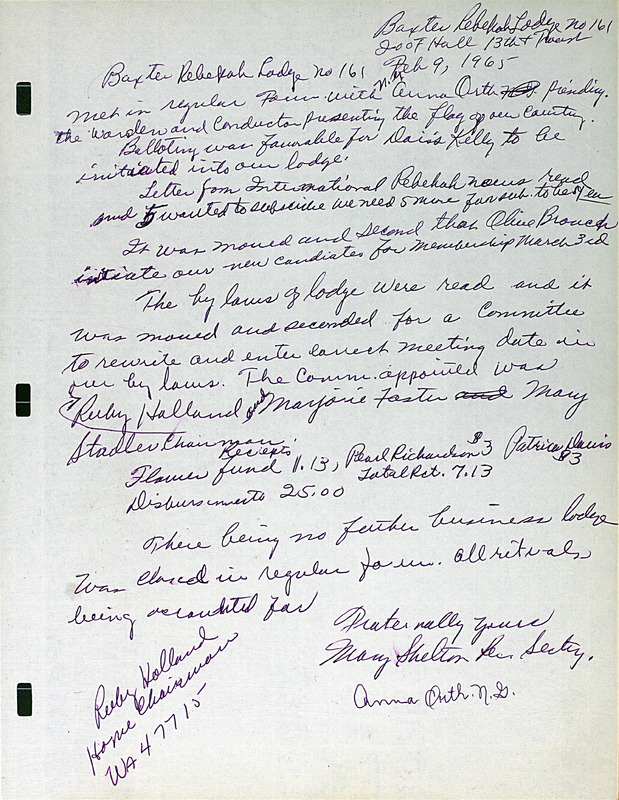 Baxter Rebekah Lodge no 161
IOOF Hall 13th &
Feb 9, 1965
Baxter Rebekah Lodge no 161
met in regular Form with N.G. Anna Orth presiding.
the Warden and Conductor presenting the flag of our Country.
Balloting was favorable for Davis Kelly to be
initiated into our lodge.
Letter from International Rebekah news read
and 5 wanted to subscribe we need 5 more for sub. to be
It was moved and second that Olive Branch
initiate our new candidates for membership March 3rd
The by laws of lodge were read and it
was moved and seconded for a Committee
to rewrite and enter correct meeting date in
our by laws. The Comm. appointed was
Ruby Holland and Marjorie Foster and Mary
Stadler Chairman.
Reciepts
Flower fund 1.13, Pearl Richardson $3 Patricia Davis $3
Total Rct. 7.13
Disbursments 25.00
There being no futher business lodge
was closed in regular form. all rituals
being accounted for
Fraternally yours
Mary Shelton Rec. Sectry.
Anna Orth. N.G.
Ruby Holland
Home Chairman
WA 47715